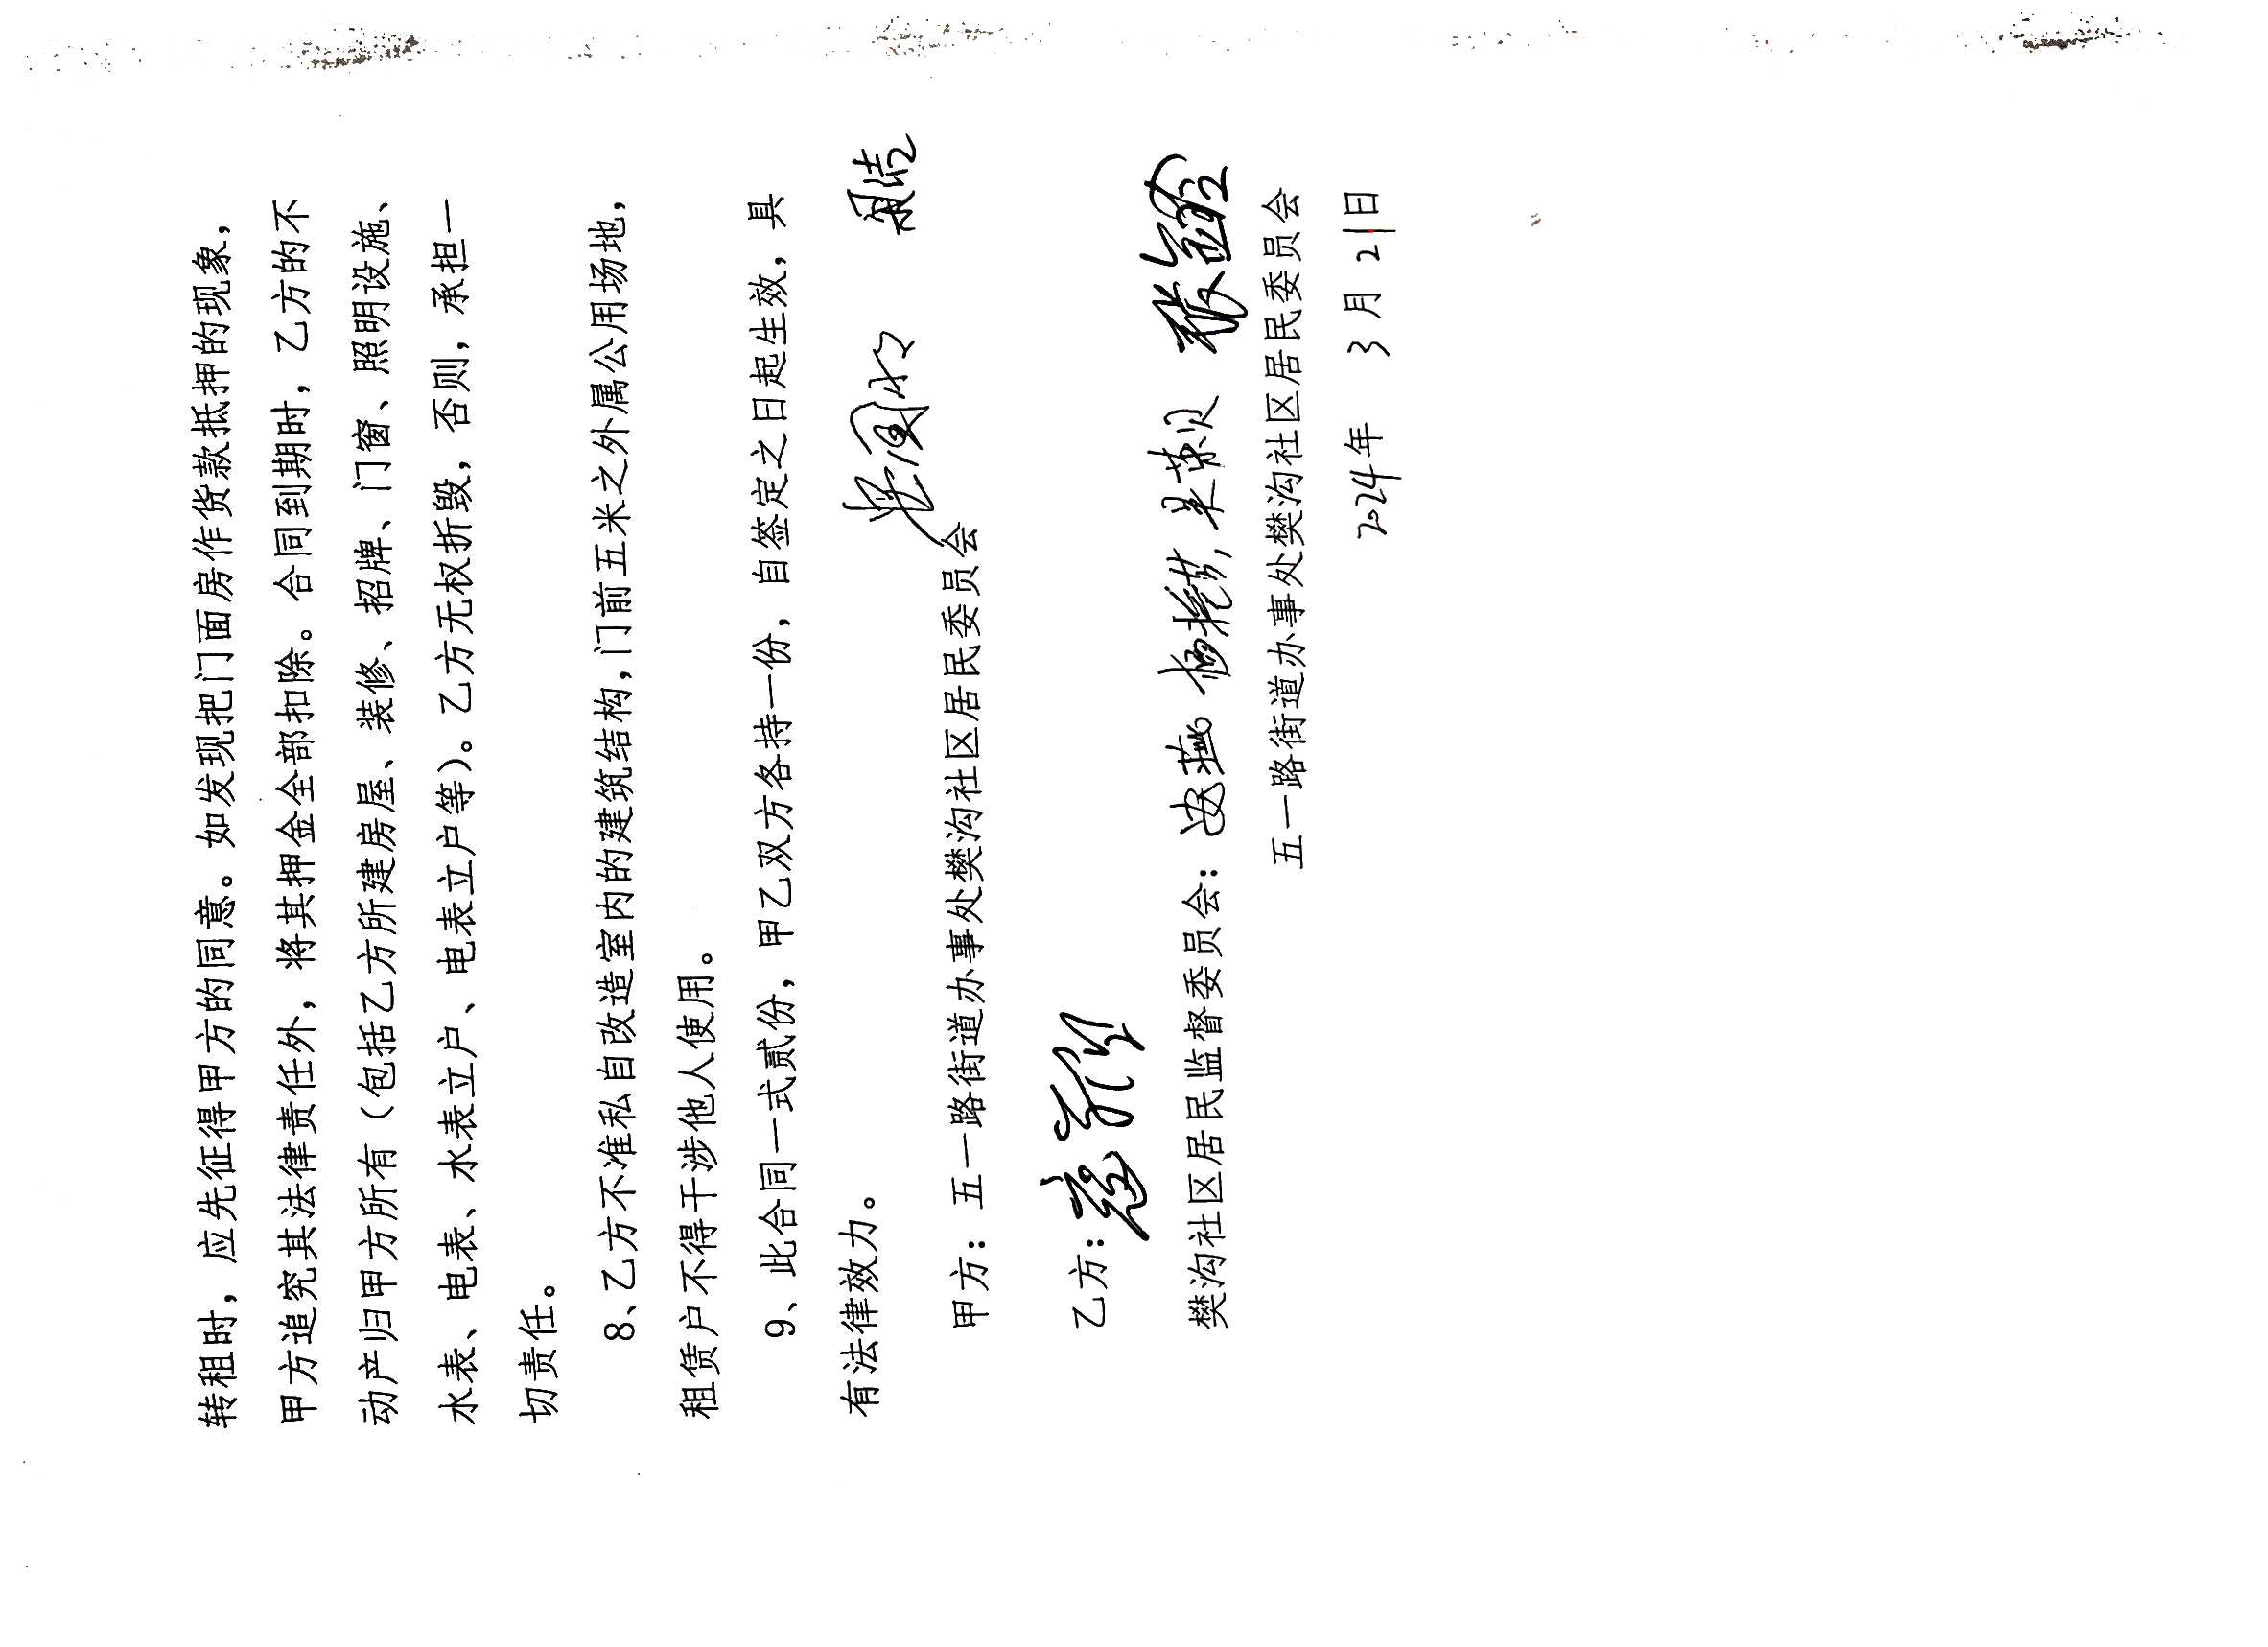 转租时，应先征得甲方的同意。如发现把门面房作货款抵押的现象，
甲方追究其法律责任外，将其押金全部扣除。合同到期时，乙方的不
动产归甲方所有（包括乙方所建房屋、装修、招牌、门窗、照明设施、
水表、电表、水表立户、电表立户等）。乙方无权折毁，否则，承担一
切责任。
8、乙方不准私自改造室内的建筑结构，门前五米之外属公用场地，
租赁户不得干涉他人使用。
9、此合同一式贰份，甲乙双方各持一份，自签定之日起生效，具
有法律效力。
甲方：五一路街道办事处樊沟社区居民委员会
乙方：
樊沟社区居民监督委员会：
五一路街道办事处樊沟社区居民委员会
2024年 3月21日